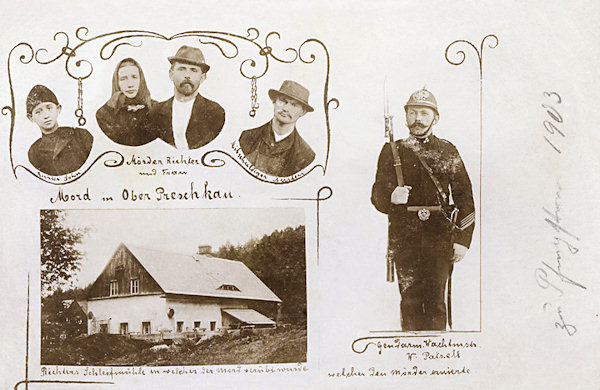 Mörder Richter
und Frau
Mord in Ober Preschkau.
Richters Schleifmühle in welcher der Mord verübt wurde
Gendarm. Wachtmstr.
W. Patzelt
welcher den Mörder eruirte
zu Pfingsten 1903